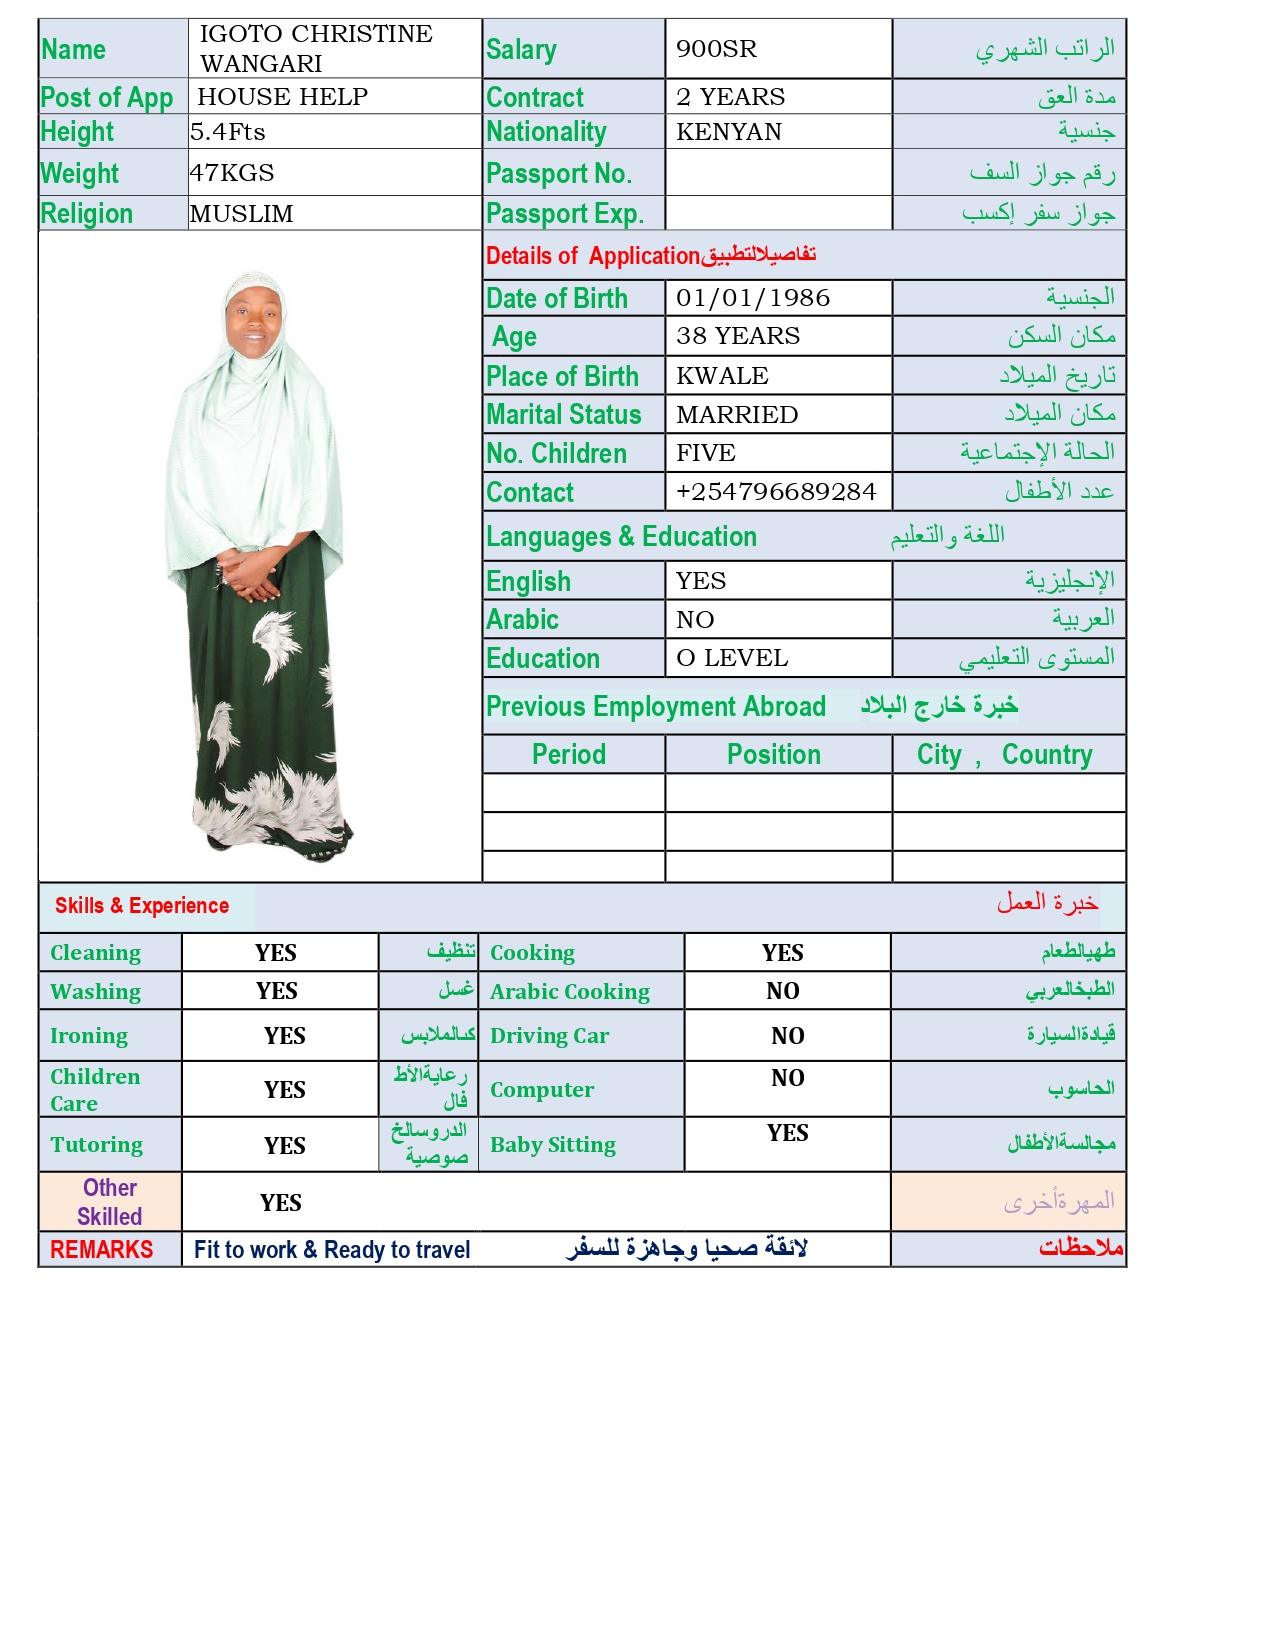 Name IGOTO CHRISTINE WANGARI Salary 900SR الراتب الشهري
Post of App HOUSE HELP Contract 2 YEARS مدة العق
Height 5.4Fts Nationality KENYAN جنسية
Weight 47KGS Passport No. رقم جواز السف
Religion MUSLIM Passport Exp. جواز سفر إكسب
Details of Application تفاصيلالتطبيق
Date of Birth 01/01/1986 الجنسية
Age 38 YEARS مكان السكن
Place of Birth KWALE تاريخ الميلاد
Marital Status MARRIED مكان الميلاد
No. Children FIVE الحالة الإجتماعية
Contact +254796689284 عدد الأطفال
Languages & Education اللغة والتعليم
English YES الإنجليزية
Arabic NO العربية
Education O LEVEL المستوى التعليمي
Previous Employment Abroad خبرة خارج البلاد
Period Position City , Country
Skills & Experience خبرة العمل
Cleaning YES تنظيف Cooking YES طهيالطعام
Washing YES غسل Arabic Cooking NO الطبخالعربي
Ironing YES كىالملابس Driving Car NO قيادةالسيارة
Children Care YES رعايةالأط فال Computer NO الحاسوب
Tutoring YES الدروسالخ صوصية Baby Sitting YES مجالسةالأطفال
Other Skilled YES المهرةأخرى
REMARKS Fit to work & Ready to travel لائقة صحيا وجاهزة للسفر ملاحظات